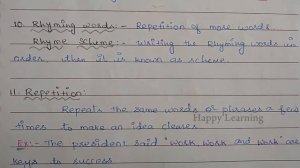 10. Rhyming words:- Repetition of more words.
Rhyme Scheme:- Writing the rhyming words in
order, then it is known as scheme.
11. Repetition:
Repeats the same words or phrases a few
times to make an idea clearer.
Happy Learning
Ex:- The president said "work, work and work" are
keys to success